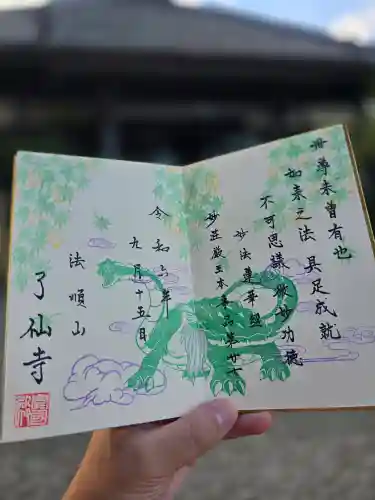 世尊未曾有也
如来之法具足成就
不可思議微妙功徳
妙法蓮華経
妙莊厳王本事品第廿七
令和六年
九月十五日
法順山
了仙寺